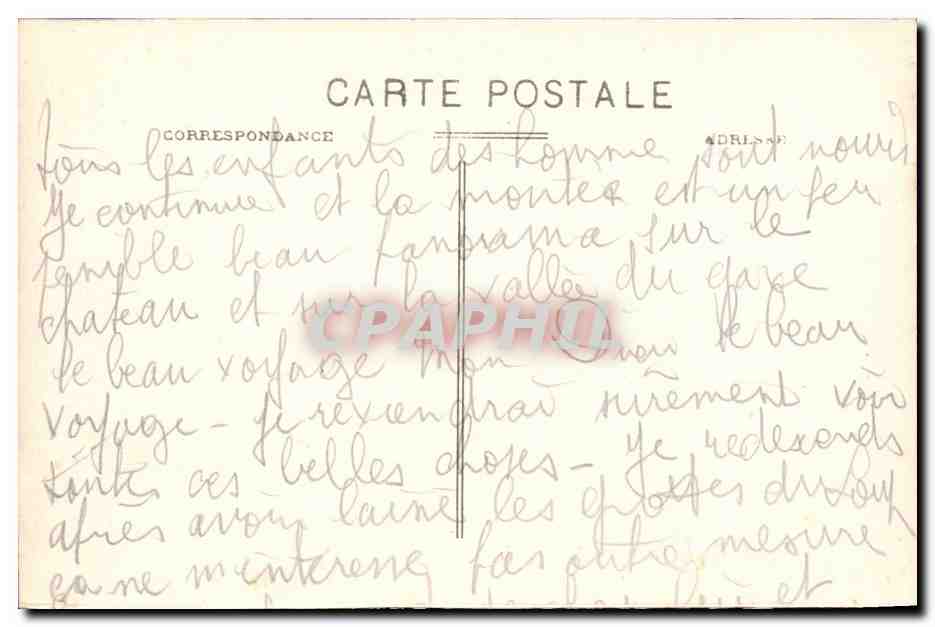 CARTE POSTALE
CORRESPONDANCE
ADRESSE
tous les enfants des homme sont nouri
Je continue et la montee est un peu
penible beau panorama sur le
chateau et sur la vallée du gave
CPAPHIL
le beau voyage mon Dieu le beau
voyage - je reviendrai surement voir
toutes ces belles choses - Je redescends
après avoir laissé les grottes du Loup
ça ne m'interesse pas outre mesure
et